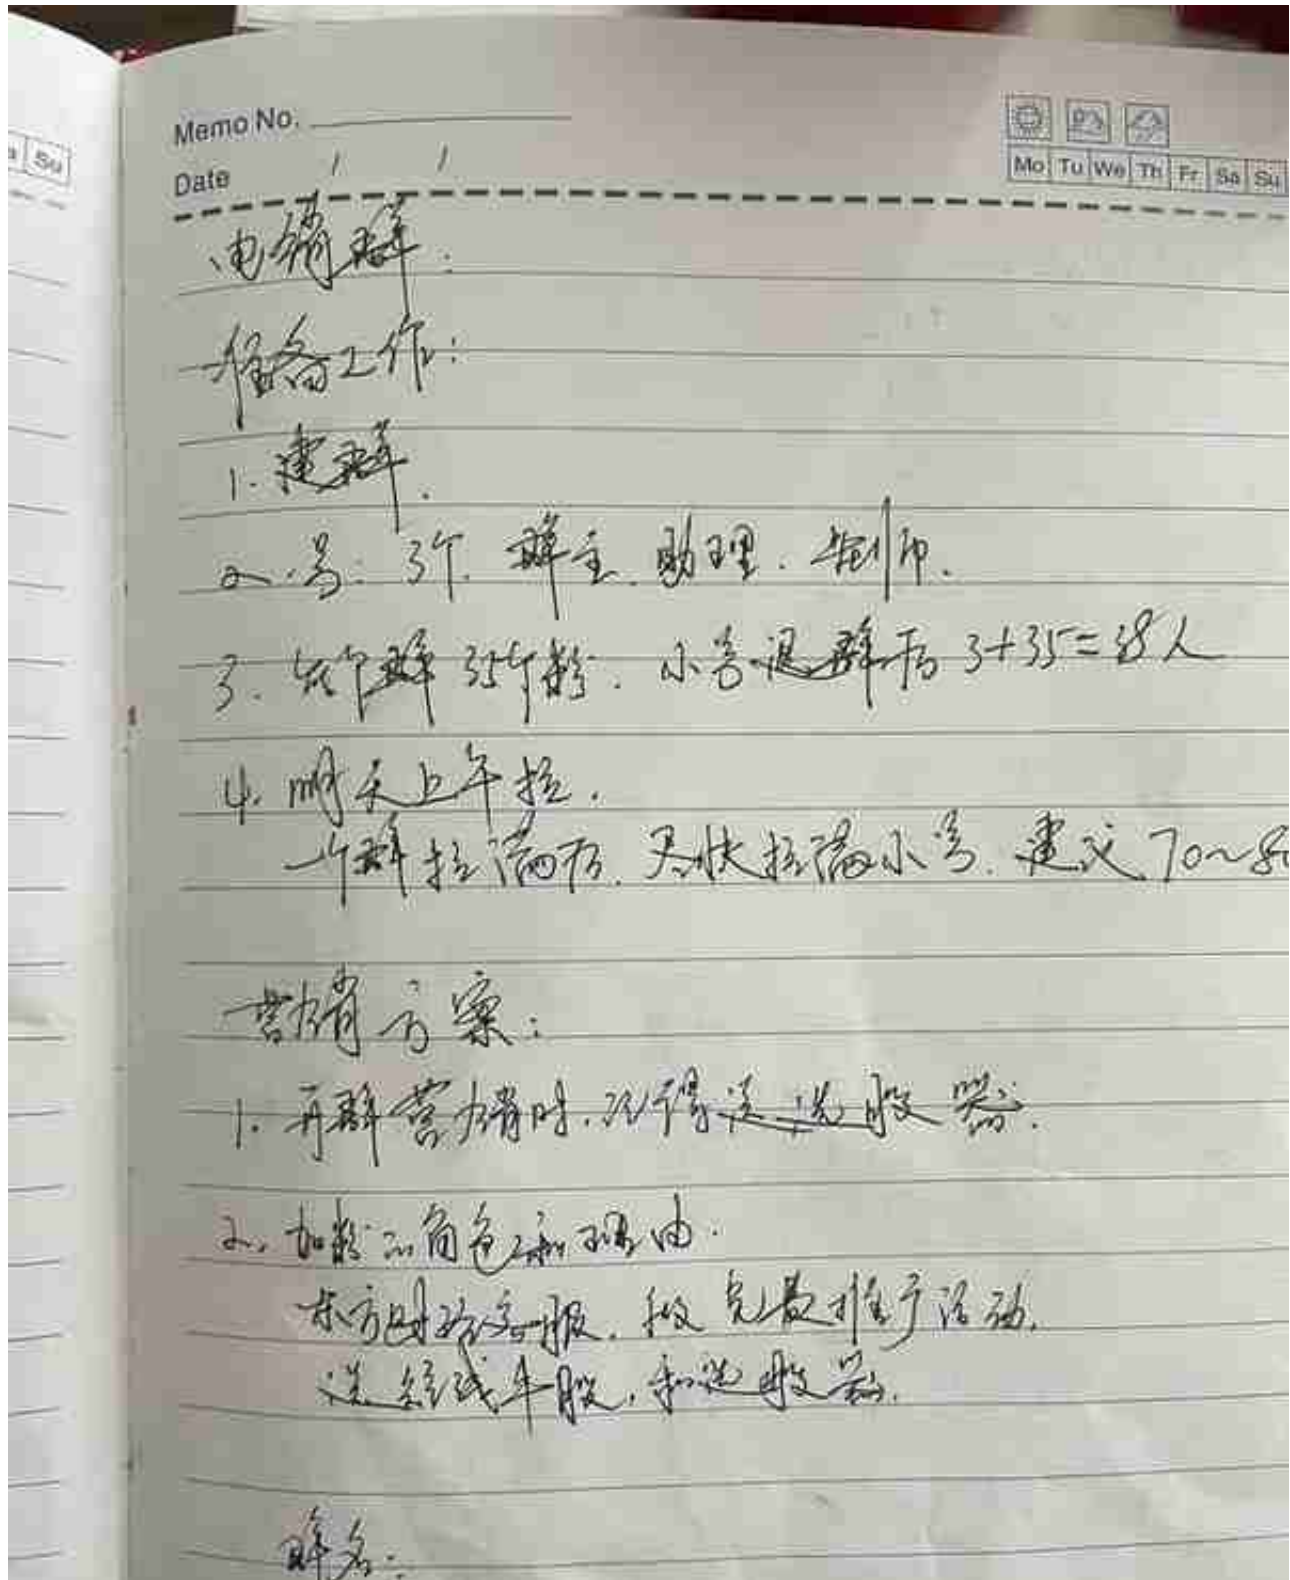 Su
Memo No.
Date / /
Mo Tu We Th Fr Sa Su
电销群:
准备工作:
1. 建群.
2. 号: 3个. 群主. 助理. 老师.
3. 每个群 35个粉. 小号退群后 3+35=38人
4. 明天上午拉.
一个群拉满后. 尽快拉满小号. 建议 70~80
营销方案:
1. 再群营销时. 记得送选股器.
2. 加粉的角色和理由.
东方财经客服. 做免费推广活动.
送短线牛股, 和选股器.
群名: